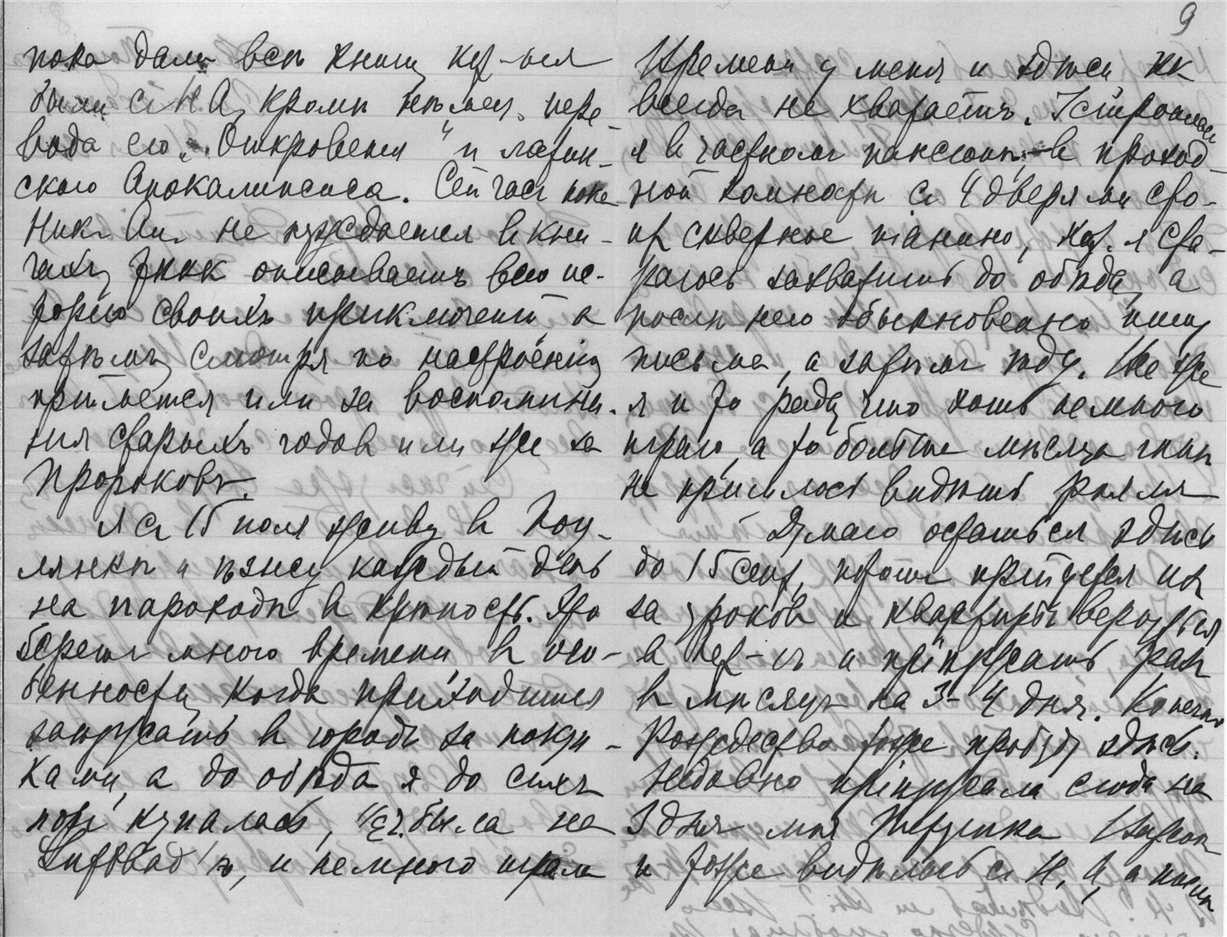 пока дали всѣ книги кот-ыя
были съ Н. А. кромѣ нѣмец. пере-
вода его "Откровенія" и латин-
скаго Апокалипсиса. Сейчасъ пока
Ник. Ал. не нуждается въ кни-
гахъ, такъ какъ описываетъ всю ис-
торію своихъ приключеній а
затѣмъ смотря по настроенію
примется или за воспомина-
нія старыхъ годовъ или же за
Пророковъ.
Я съ 15 іюля живу въ
и ѣзжу каждый день
на пароходѣ въ крѣпость. Это
беретъ много времени въ осо-
бенности, когда приходится
заѣзжать въ городъ за покуп-
ками, а до обѣда я до сихъ
поръ купалась, была на
Luftbad'ѣ, и немного играла
9
Времени у меня и здѣсь какъ
всегда не хватаетъ. Устроилась
я въ частномъ пансіонѣ, въ проход
ной комнатѣ съ 4 дверями сто-
итъ скверное піанино, кот. я ста-
раюсь захватить до обѣда, а
послѣ него обыкновенно пишу
письма, а затѣмъ ѣду. Все же
я и то рада, что хоть немного
играю, а то больше мѣсяца
не пришлось видѣть рояля
Думаю остаться здѣсь
до 15 сент, потомъ придется изъ
за уроковъ и квартиры вернуться
въ Пет-гъ и пріѣзжать разъ
въ мѣсяцъ на 3-4 дня. Конечно
Рождество тоже пробуду здѣсь.
Недавно пріѣзжала сюда на
3 дня моя
и тоже видѣлась съ Н. А, а послѣ